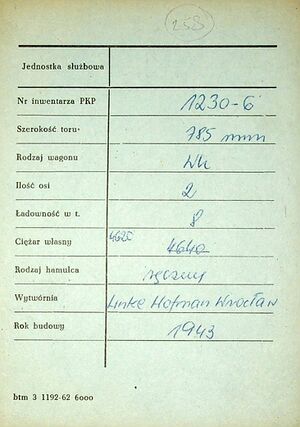 258
Jednostka służbowa
Nr inwentarza PKP 1230-6
Szerokość toru 785 mm
Rodzaj wagonu Wk
Ilość osi 2
Ładowność w t. 8
Ciężar własny 4625 4640
Rodzaj hamulca ręczny
Wytwórnia Linke Hofman Wrocław
Rok budowy 1943
btm 3 1192-62 6000